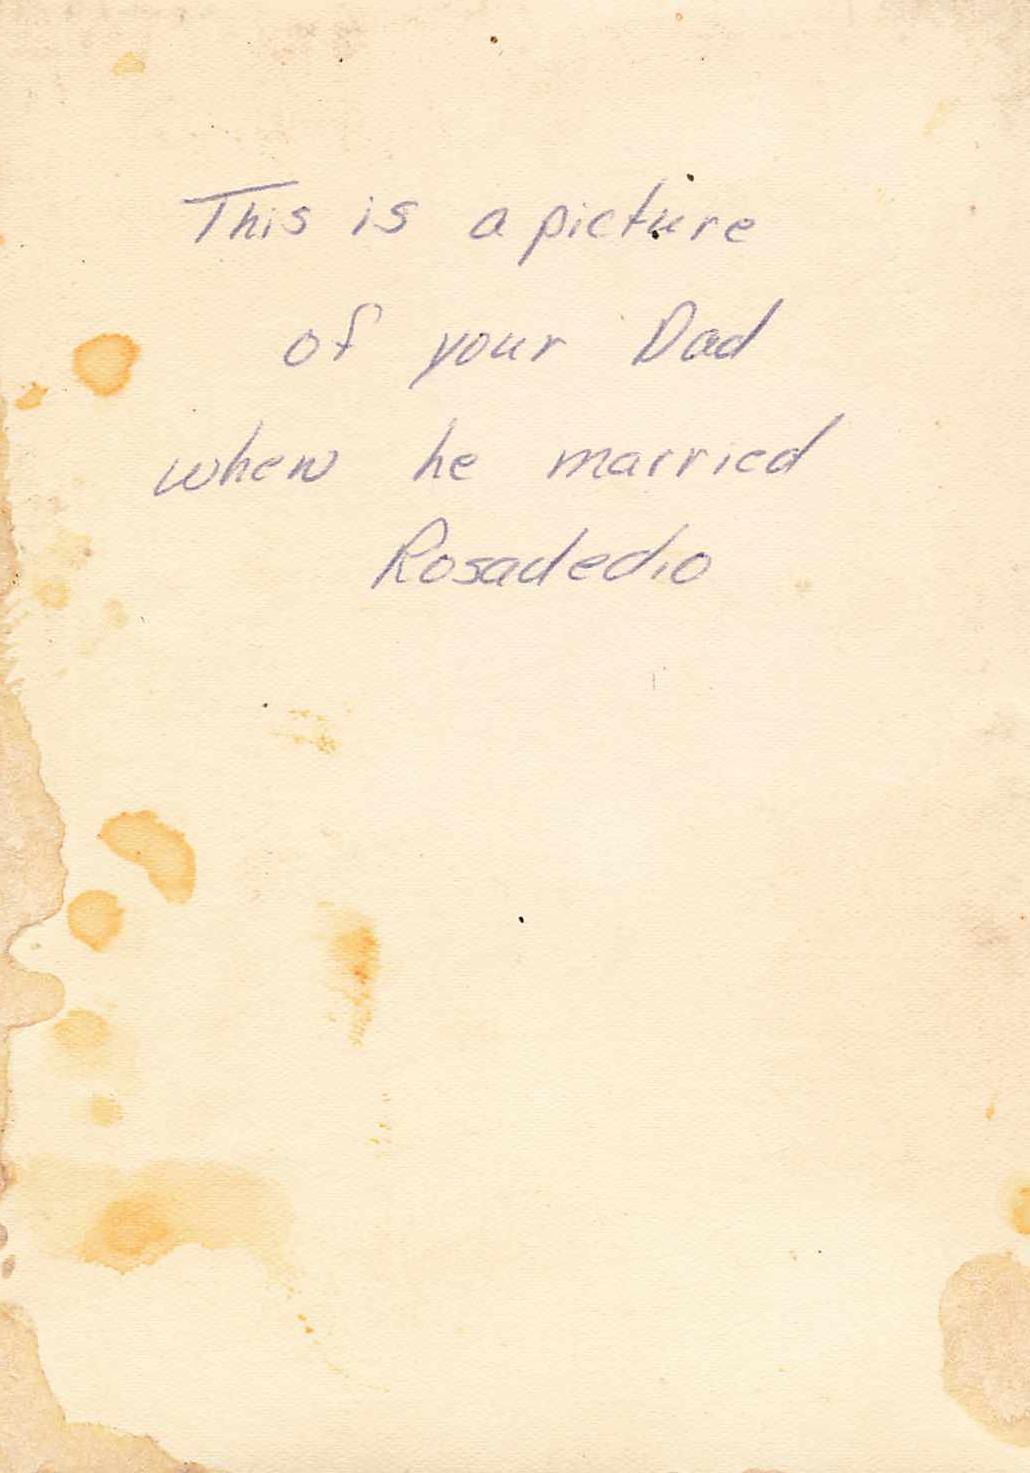 This is a picture
of your Dad
when he married
Rosadedio